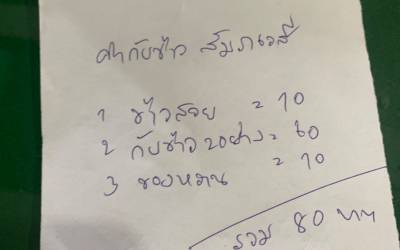 ค่ากับข้าว สัมภเวสี
1 ข้าวสวย = 10
2 กับข้าว 2 อย่าง = 60
3 ของหวาน = 10
รวม 80 บาท